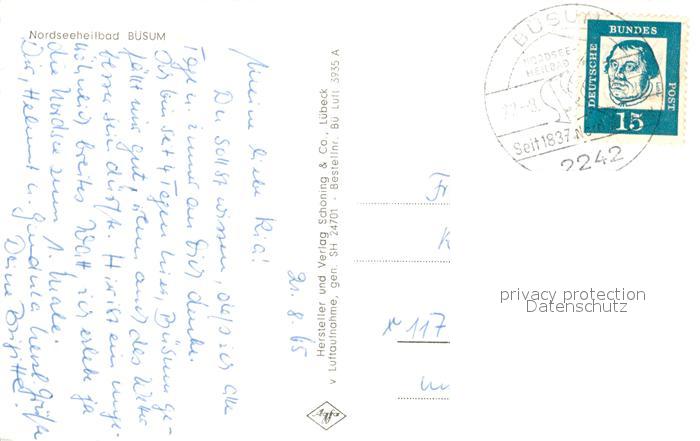 Nordseeheilbad BÜSUM
21.8.65
Meine liebe Ria!
Du sollst wissen, daß ich alle
Tage immer an Dich denke.
Ich bin seit 4 Tagen hier, Büsum ge-
fällt mir gut, wenn auch das Wetter
besser sein dürfte. Hier ist ein unge-
wöhnlich breites Watt, ich erlebe ja
die Nordsee zum 1. Male.
Dir, Helmut u. Gundula herzl. Grüße
Deine Brigitte
Hersteller und Verlag Schöning & Co., Lübeck
v Luftaufnahme, gen. SH 24701 - Bestellnr. Bü Luft 3935 A
Agfa
BÜSUM
NORDSEE-
HEILBAD
Seit 1837
2242
DEUTSCHE
BUNDES
POST
15
Fr
K
117
privacy protection
Datenschutz